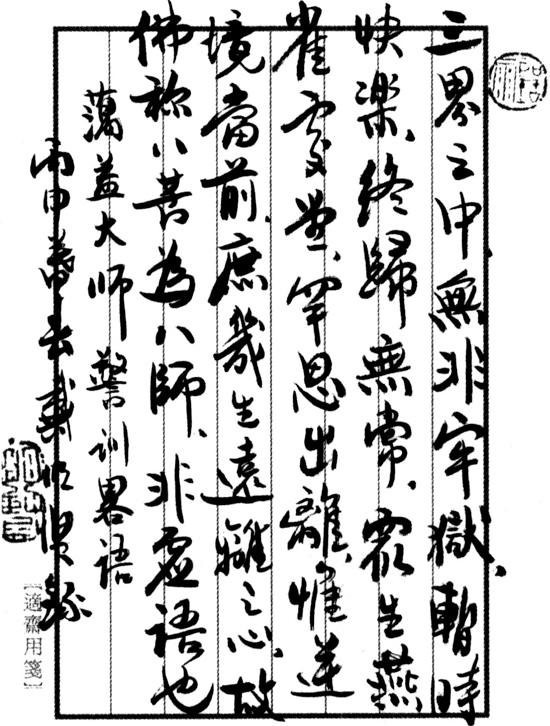 三界之中、無非牢獄、暫時
快樂、終歸無常、衆生燕
雀處堂、罕思出離、惟逆
境當前、庶幾生遠離之心、故
佛稱八苦為八師、非虛語也
蕅益大師警訓畧語
丙申暮春戴明賢錄
【適齋用箋】